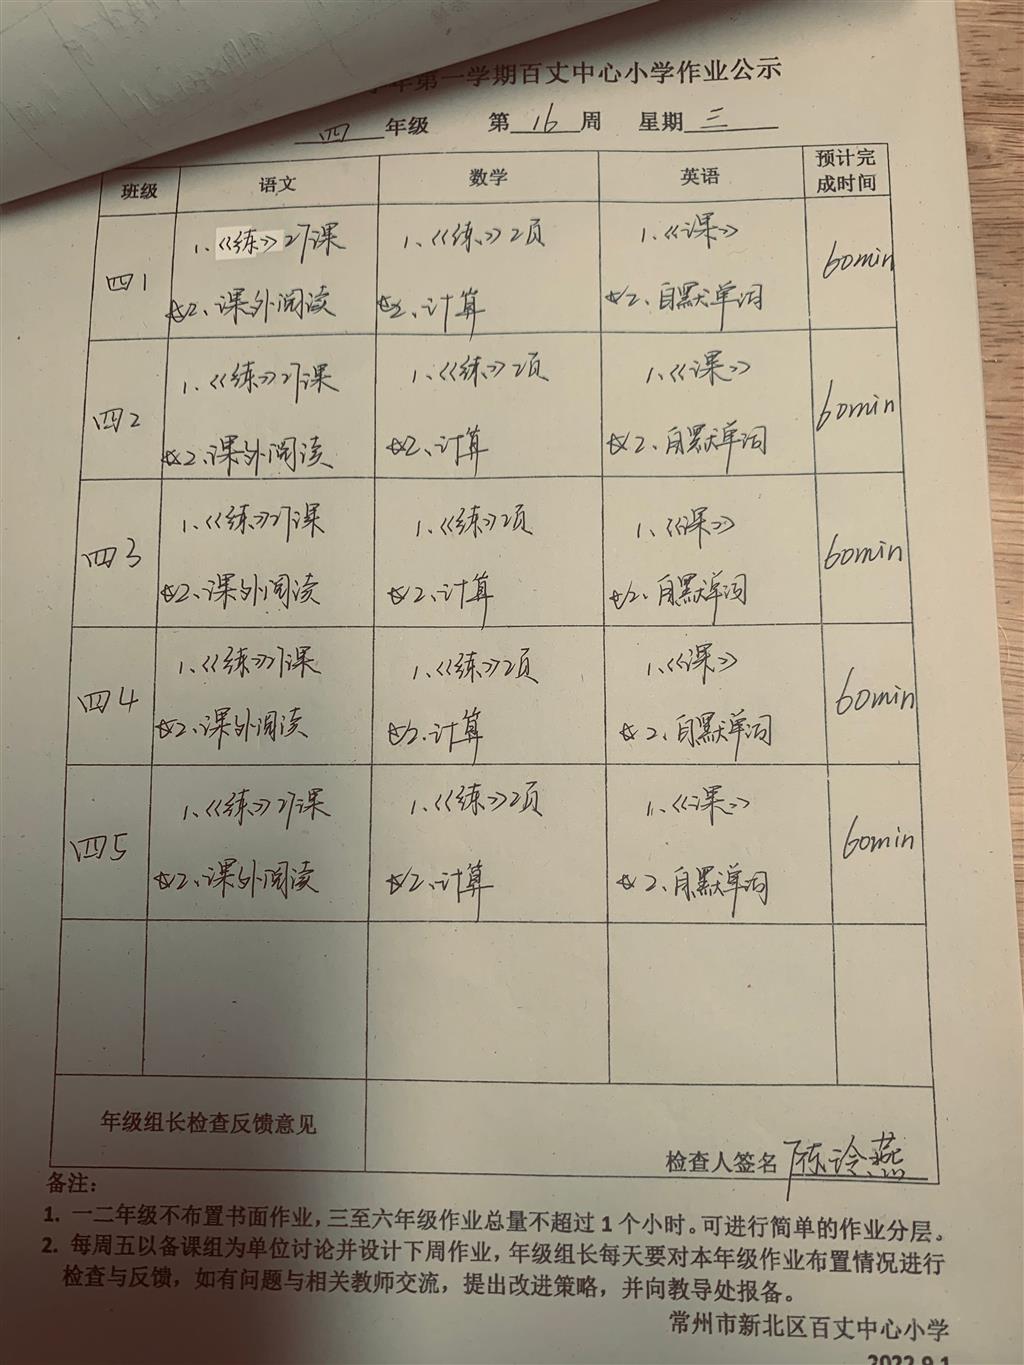 年第一学期百丈中心小学作业公示
四 年级 第 16 周 星期 三
班级 语文 数学 英语 预计完成时间
四1 1、《练》27课 1、《练》2页 1、《课》 60min
☆2、课外阅读 ☆2、计算 ☆2、自默单词
四2 1、《练》27课 1、《练》2页 1、《课》 60min
☆2、课外阅读 ☆2、计算 ☆2、自默单词
四3 1、《练》27课 1、《练》2页 1、《课》 60min
☆2、课外阅读 ☆2、计算 ☆2、自默单词
四4 1、《练》27课 1、《练》2页 1、《课》 60min
☆2、课外阅读 ☆2、计算 ☆2、自默单词
四5 1、《练》27课 1、《练》2页 1、《课》 60min
☆2、课外阅读 ☆2、计算 ☆2、自默单词
年级组长检查反馈意见
检查人签名 陈玲燕
备注：
1. 一二年级不布置书面作业，三至六年级作业总量不超过 1 个小时。可进行简单的作业分层。
2. 每周五以备课组为单位讨论并设计下周作业，年级组长每天要对本年级作业布置情况进行
检查与反馈，如有问题与相关教师交流，提出改进策略，并向教导处报备。
常州市新北区百丈中心小学
2022.9.1